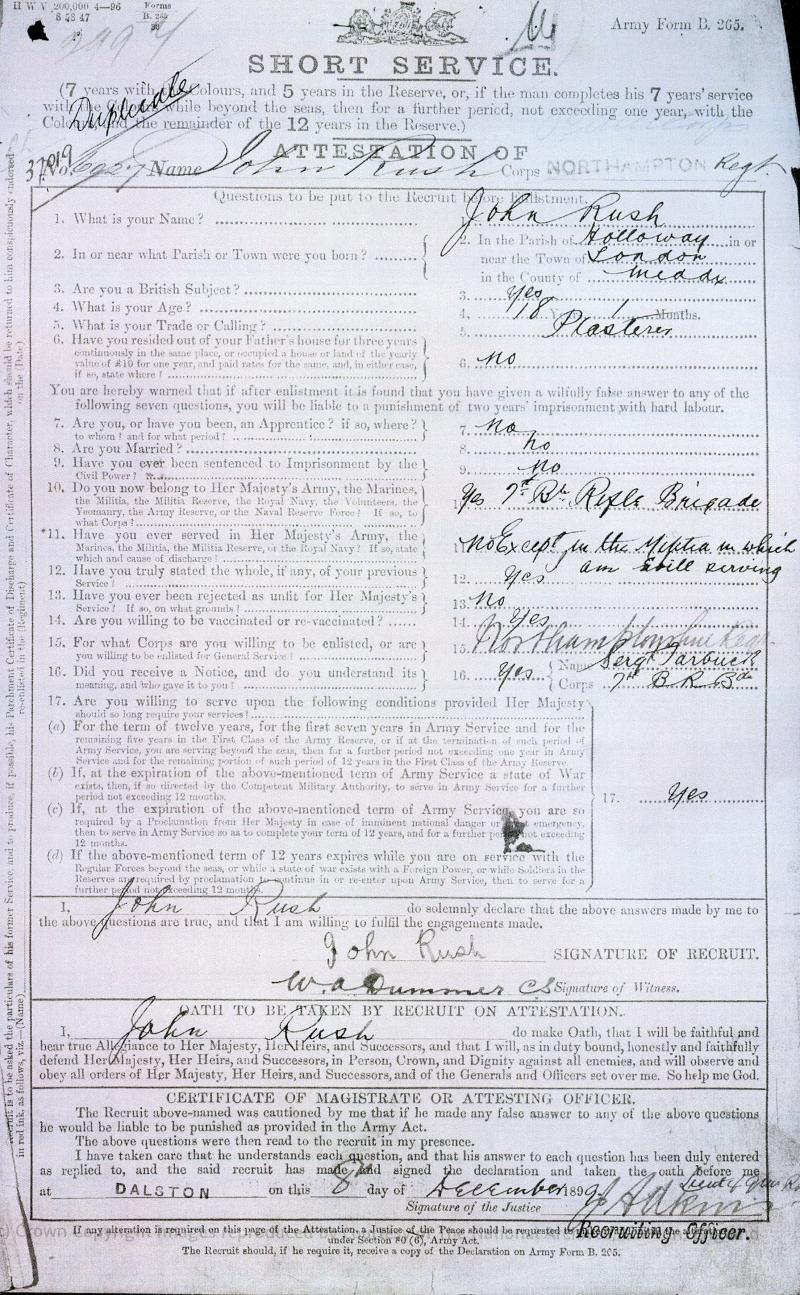 H W V 200,000 4—96 Forms
B. 265
Army Form B. 265.
SHORT SERVICE.
(7 years with the Colours, and 5 years in the Reserve, or, if the man completes his 7 years' service
with the Colours while beyond the seas, then for a further period, not exceeding one year, with the
Colours, and the remainder of the 12 years in the Reserve.)
Duplicate
ATTESTATION OF
No. 6927 Name John Rush Corps NORTHAMPTON Regt.
Questions to be put to the Recruit before Enlistment.
1. What is your Name? John Rush
2. In or near what Parish or Town were you born? 2. In the Parish of Holloway in or
near the Town of London
in the County of Middx
3. Are you a British Subject? 3. Yes
4. What is your Age? 4. 18 Years 1 Months.
5. What is your Trade or Calling? 5. Plasterer
6. Have you resided out of your Father's house for three years
continuously in the same place, or occupied a house or land of the yearly
value of £10 for one year, and paid rates for the same, and, in either case,
if so, state where? 6. No
You are hereby warned that if after enlistment it is found that you have given a wilfully false answer to any of the
following seven questions, you will be liable to a punishment of two years' imprisonment with hard labour.
7. Are you, or have you been, an Apprentice? if so, where?
to whom? and for what period? 7. No
8. Are you Married? 8. no
9. Have you ever been sentenced to Imprisonment by the
Civil Power? 9. No
10. Do you now belong to Her Majesty's Army, the Marines,
the Militia, the Militia Reserve, the Royal Navy, the Volunteers, the
Yeomanry, the Army Reserve, or the Naval Reserve Force? If so, to
what Corps? Yes 7th Bn Rifle Brigade
*11. Have you ever served in Her Majesty's Army, the
Marines, the Militia, the Militia Reserve, or the Royal Navy? If so, state
which and cause of discharge? 11. No Except in the Militia in which
am still serving
12. Have you truly stated the whole, if any, of your previous
Service? 12. Yes
13. Have you ever been rejected as unfit for Her Majesty's
Service? If so, on what grounds? 13. No
14. Are you willing to be vaccinated or re-vaccinated? 14. Yes
15. For what Corps are you willing to be enlisted, or are
you willing to be enlisted for General Service? 15. Northamptonshire Regt
16. Did you receive a Notice, and do you understand its
meaning, and who gave it to you? 16. Yes Name Sergt Tarbuck
Corps 7th B R Bde
17. Are you willing to serve upon the following conditions provided Her Majesty
should so long require your services?
(a) For the term of twelve years, for the first seven years in Army Service and for the
remaining five years in the First Class of the Army Reserve, or if at the termination of such period of
Army Service, you are serving beyond the seas, then for a further period not exceeding one year in Army
Service and for the remaining portion of such period of 12 years in the First Class of the Army Reserve.
(b) If, at the expiration of the above-mentioned term of Army Service a state of War
exists, then, if so directed by the Competent Military Authority, to serve in Army Service for a further
period not exceeding 12 months. 17. Yes
(c) If, at the expiration of the above-mentioned term of Army Service, you are so
required by a Proclamation from Her Majesty in case of imminent national danger or emergency,
then to serve in Army Service so as to complete your term of 12 years, and for a further period not exceeding
12 months.
(d) If the above-mentioned term of 12 years expires while you are on service with the
Regular Forces beyond the seas, or while a state of war exists with a Foreign Power, or while Soldiers in the
Reserves are required by proclamation to continue in or re-enter upon Army Service, then to serve for a
further period not exceeding 12 months.
I, John Rush do solemnly declare that the above answers made by me to
the above questions are true, and that I am willing to fulfil the engagements made.
John Rush SIGNATURE OF RECRUIT.
W. A Dummer CS Signature of Witness.
OATH TO BE TAKEN BY RECRUIT ON ATTESTATION.
I, John Rush do make Oath, that I will be faithful and
bear true Allegiance to Her Majesty, Her Heirs, and Successors, and that I will, as in duty bound, honestly and faithfully
defend Her Majesty, Her Heirs, and Successors, in Person, Crown, and Dignity against all enemies, and will observe and
obey all orders of Her Majesty, Her Heirs, and Successors, and of the Generals and Officers set over me. So help me God.
CERTIFICATE OF MAGISTRATE OR ATTESTING OFFICER.
The Recruit above-named was cautioned by me that if he made any false answer to any of the above questions
he would be liable to be punished as provided in the Army Act.
The above questions were then read to the recruit in my presence.
I have taken care that he understands each question, and that his answer to each question has been duly entered
as replied to, and the said recruit has made and signed the declaration and taken the oath before me
at DALSTON on this 8th day of December 189
Signature of the Justice
Recruiting Officer.
If any alteration is required on this page of the Attestation, a Justice of the Peace should be requested to
under Section 80 (6), Army Act.
The Recruit should, if he require it, receive a copy of the Declaration on Army Form B. 265.